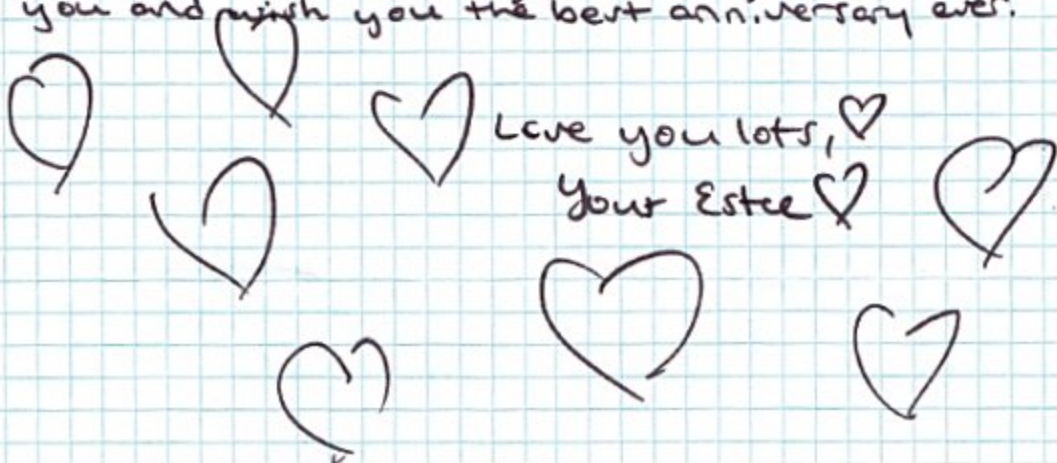 you and wish you the best anniversary ever.
Love you lots,
Your Estee